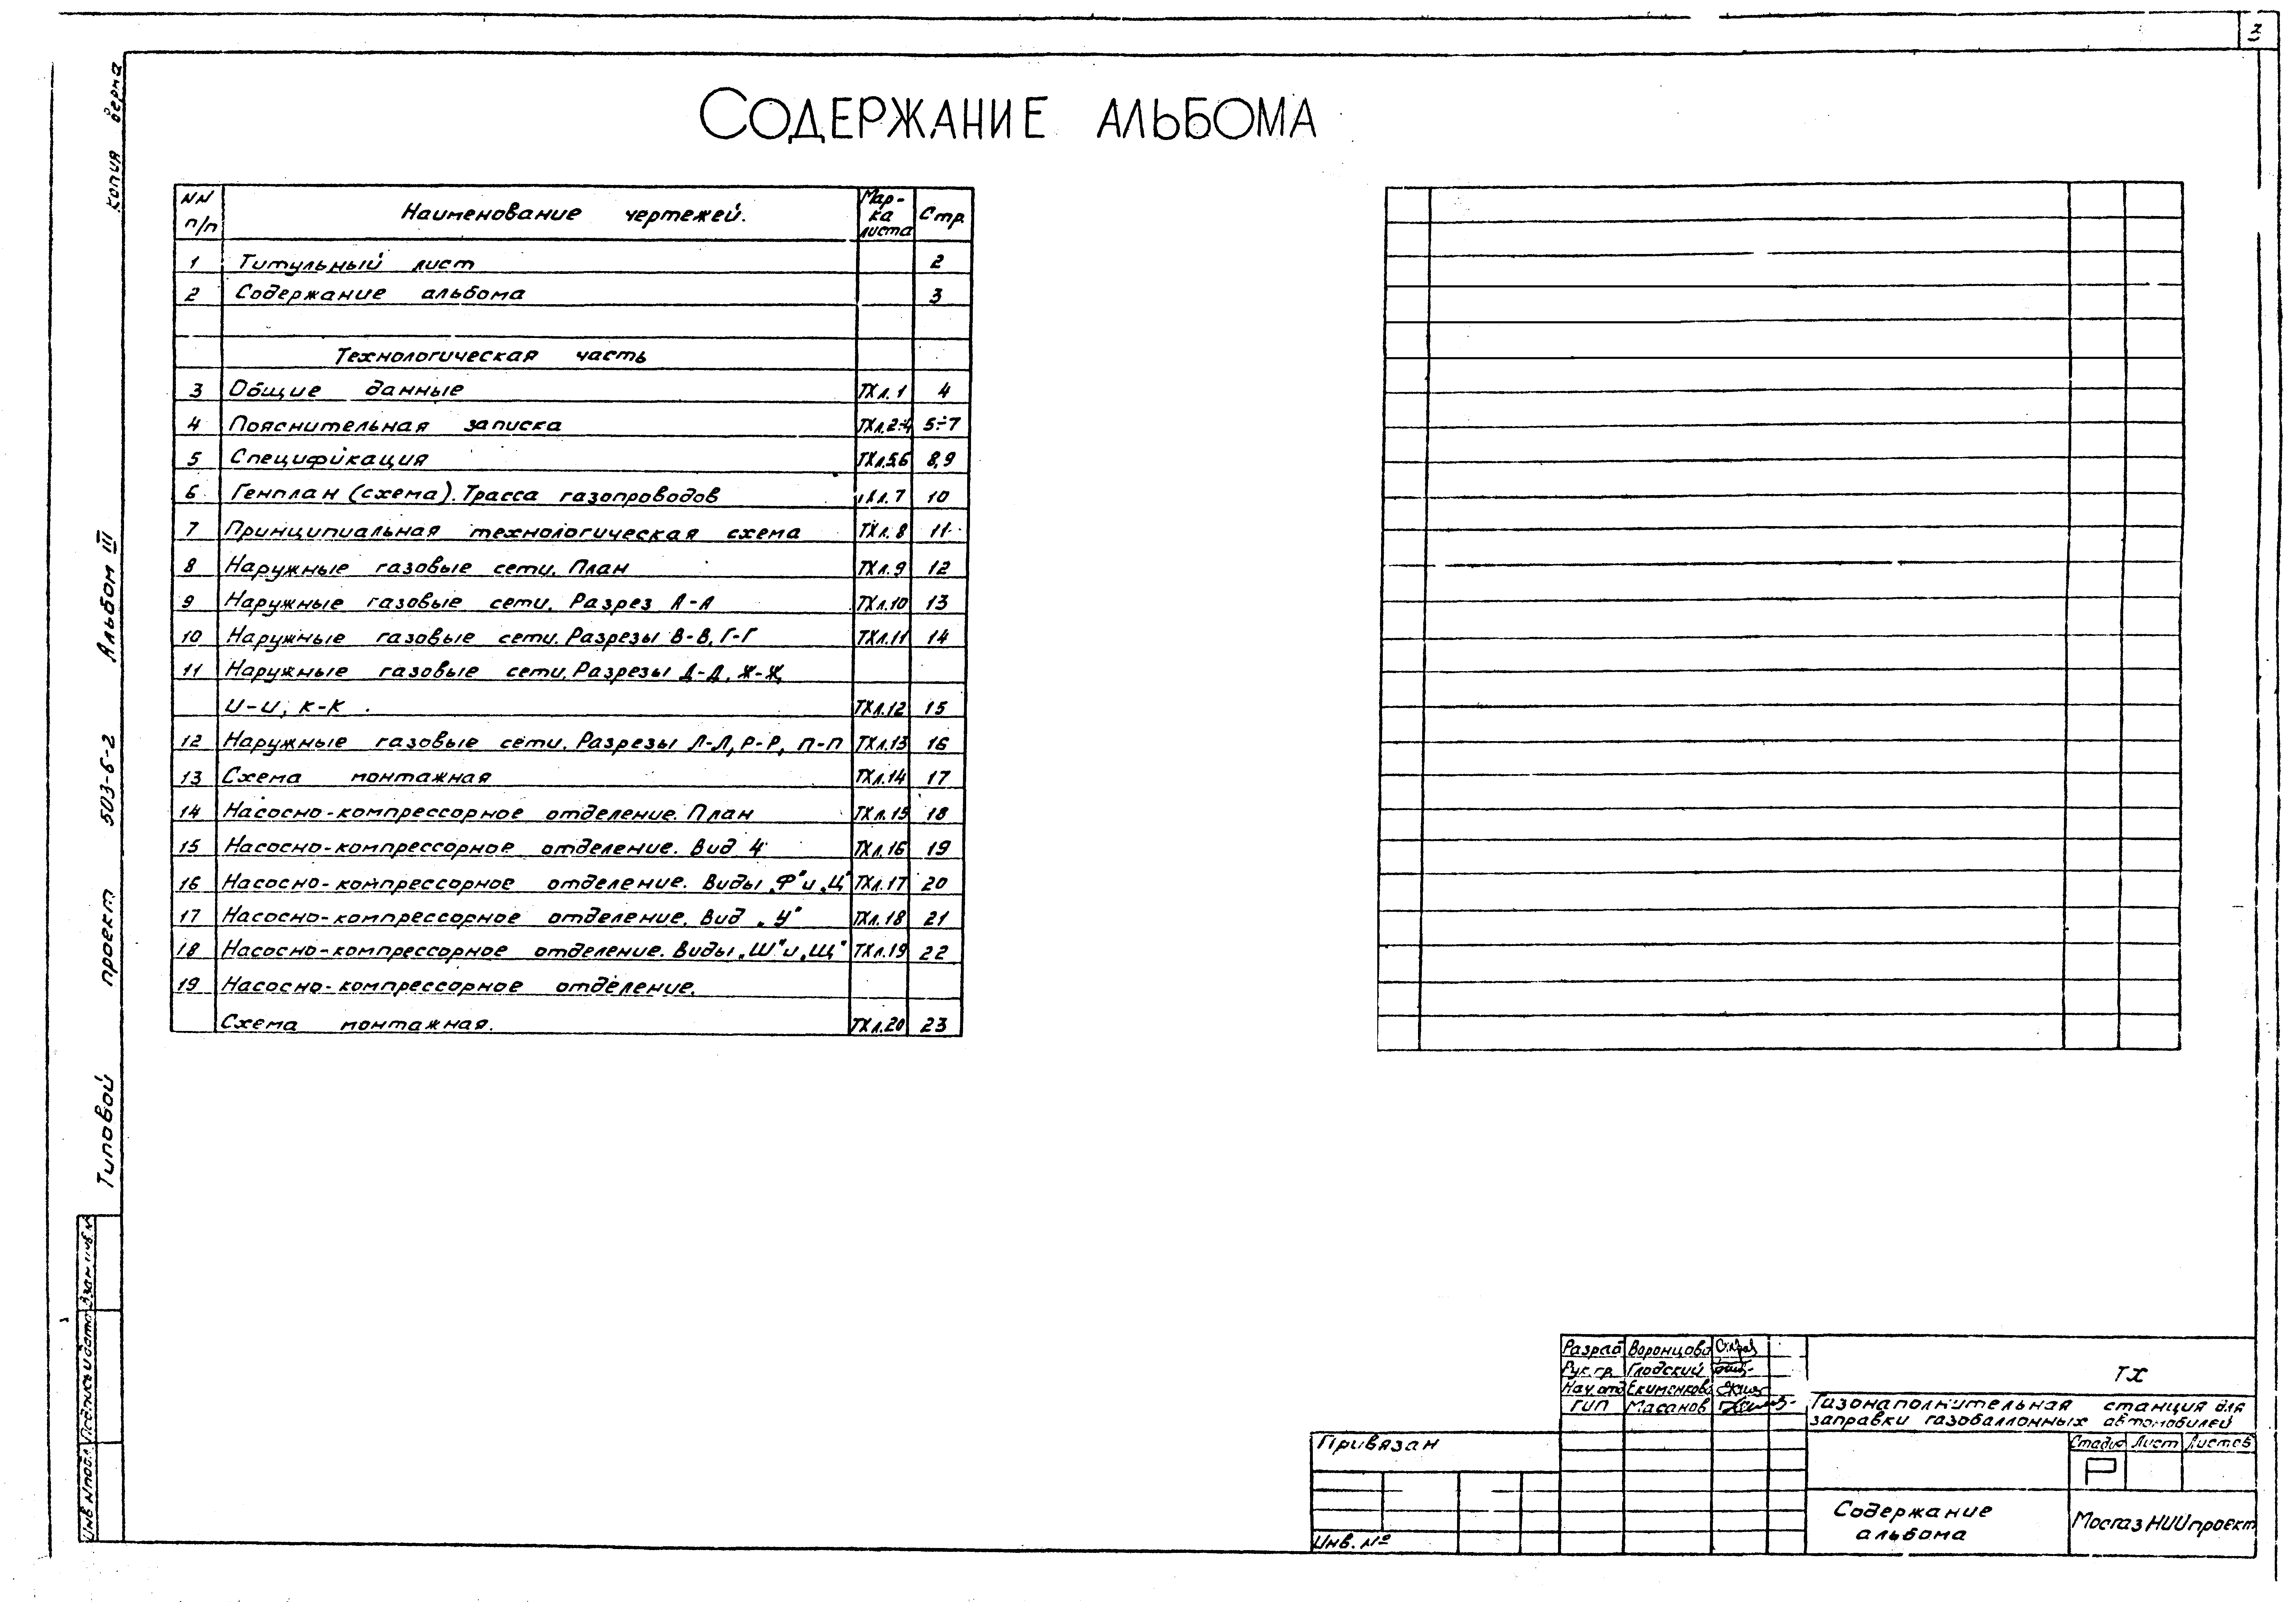 копия верна
Типовой проект 503-6-2 Альбом III
СОДЕРЖАНИЕ АЛЬБОМА
NN п/п Наименование чертежей. Мар-ка листа Стр.
1 Титульный лист 2
2 Содержание альбома 3
Технологическая часть
3 Общие данные ТХл.1 4
4 Пояснительная записка ТХл.2÷4 5÷7
5 Спецификация ТХл.5,6 8,9
6 Генплан (схема). Трасса газопроводов л.7 10
7 Принципиальная технологическая схема ТХл.8 11
8 Наружные газовые сети. План ТХл.9 12
9 Наружные газовые сети. Разрез А-А ТХл.10 13
10 Наружные газовые сети. Разрезы В-В, Г-Г ТХл.11 14
11 Наружные газовые сети. Разрезы Д-Д, Ж-Ж,
И-И, К-К. ТХл.12 15
12 Наружные газовые сети. Разрезы Л-Л, Р-Р, П-П ТХл.13 16
13 Схема монтажная ТХл.14 17
14 Насосно-компрессорное отделение. План ТХл.15 18
15 Насосно-компрессорное отделение. Вид Ч ТХл.16 19
16 Насосно-компрессорное отделение. Виды „Ф" и „Ц" ТХл.17 20
17 Насосно-компрессорное отделение. Вид „У" ТХл.18 21
18 Насосно-компрессорное отделение. Виды „Ш" и „Щ" ТХл.19 22
19 Насосно-компрессорное отделение.
Схема монтажная. ТХл.20 23
Взам инв. №
Подпись и дата
Инв № подл.
Разраб Воронцова
Рук. гр. Глодский
Нач. отд Екименкова
ГИП Масанов
ТХ
Газонаполнительная станция для
заправки газобаллонных автомобилей
Стадия Лист Листов
Р
Содержание
альбома
МосгазНИИпроект
Привязан
Инв. №